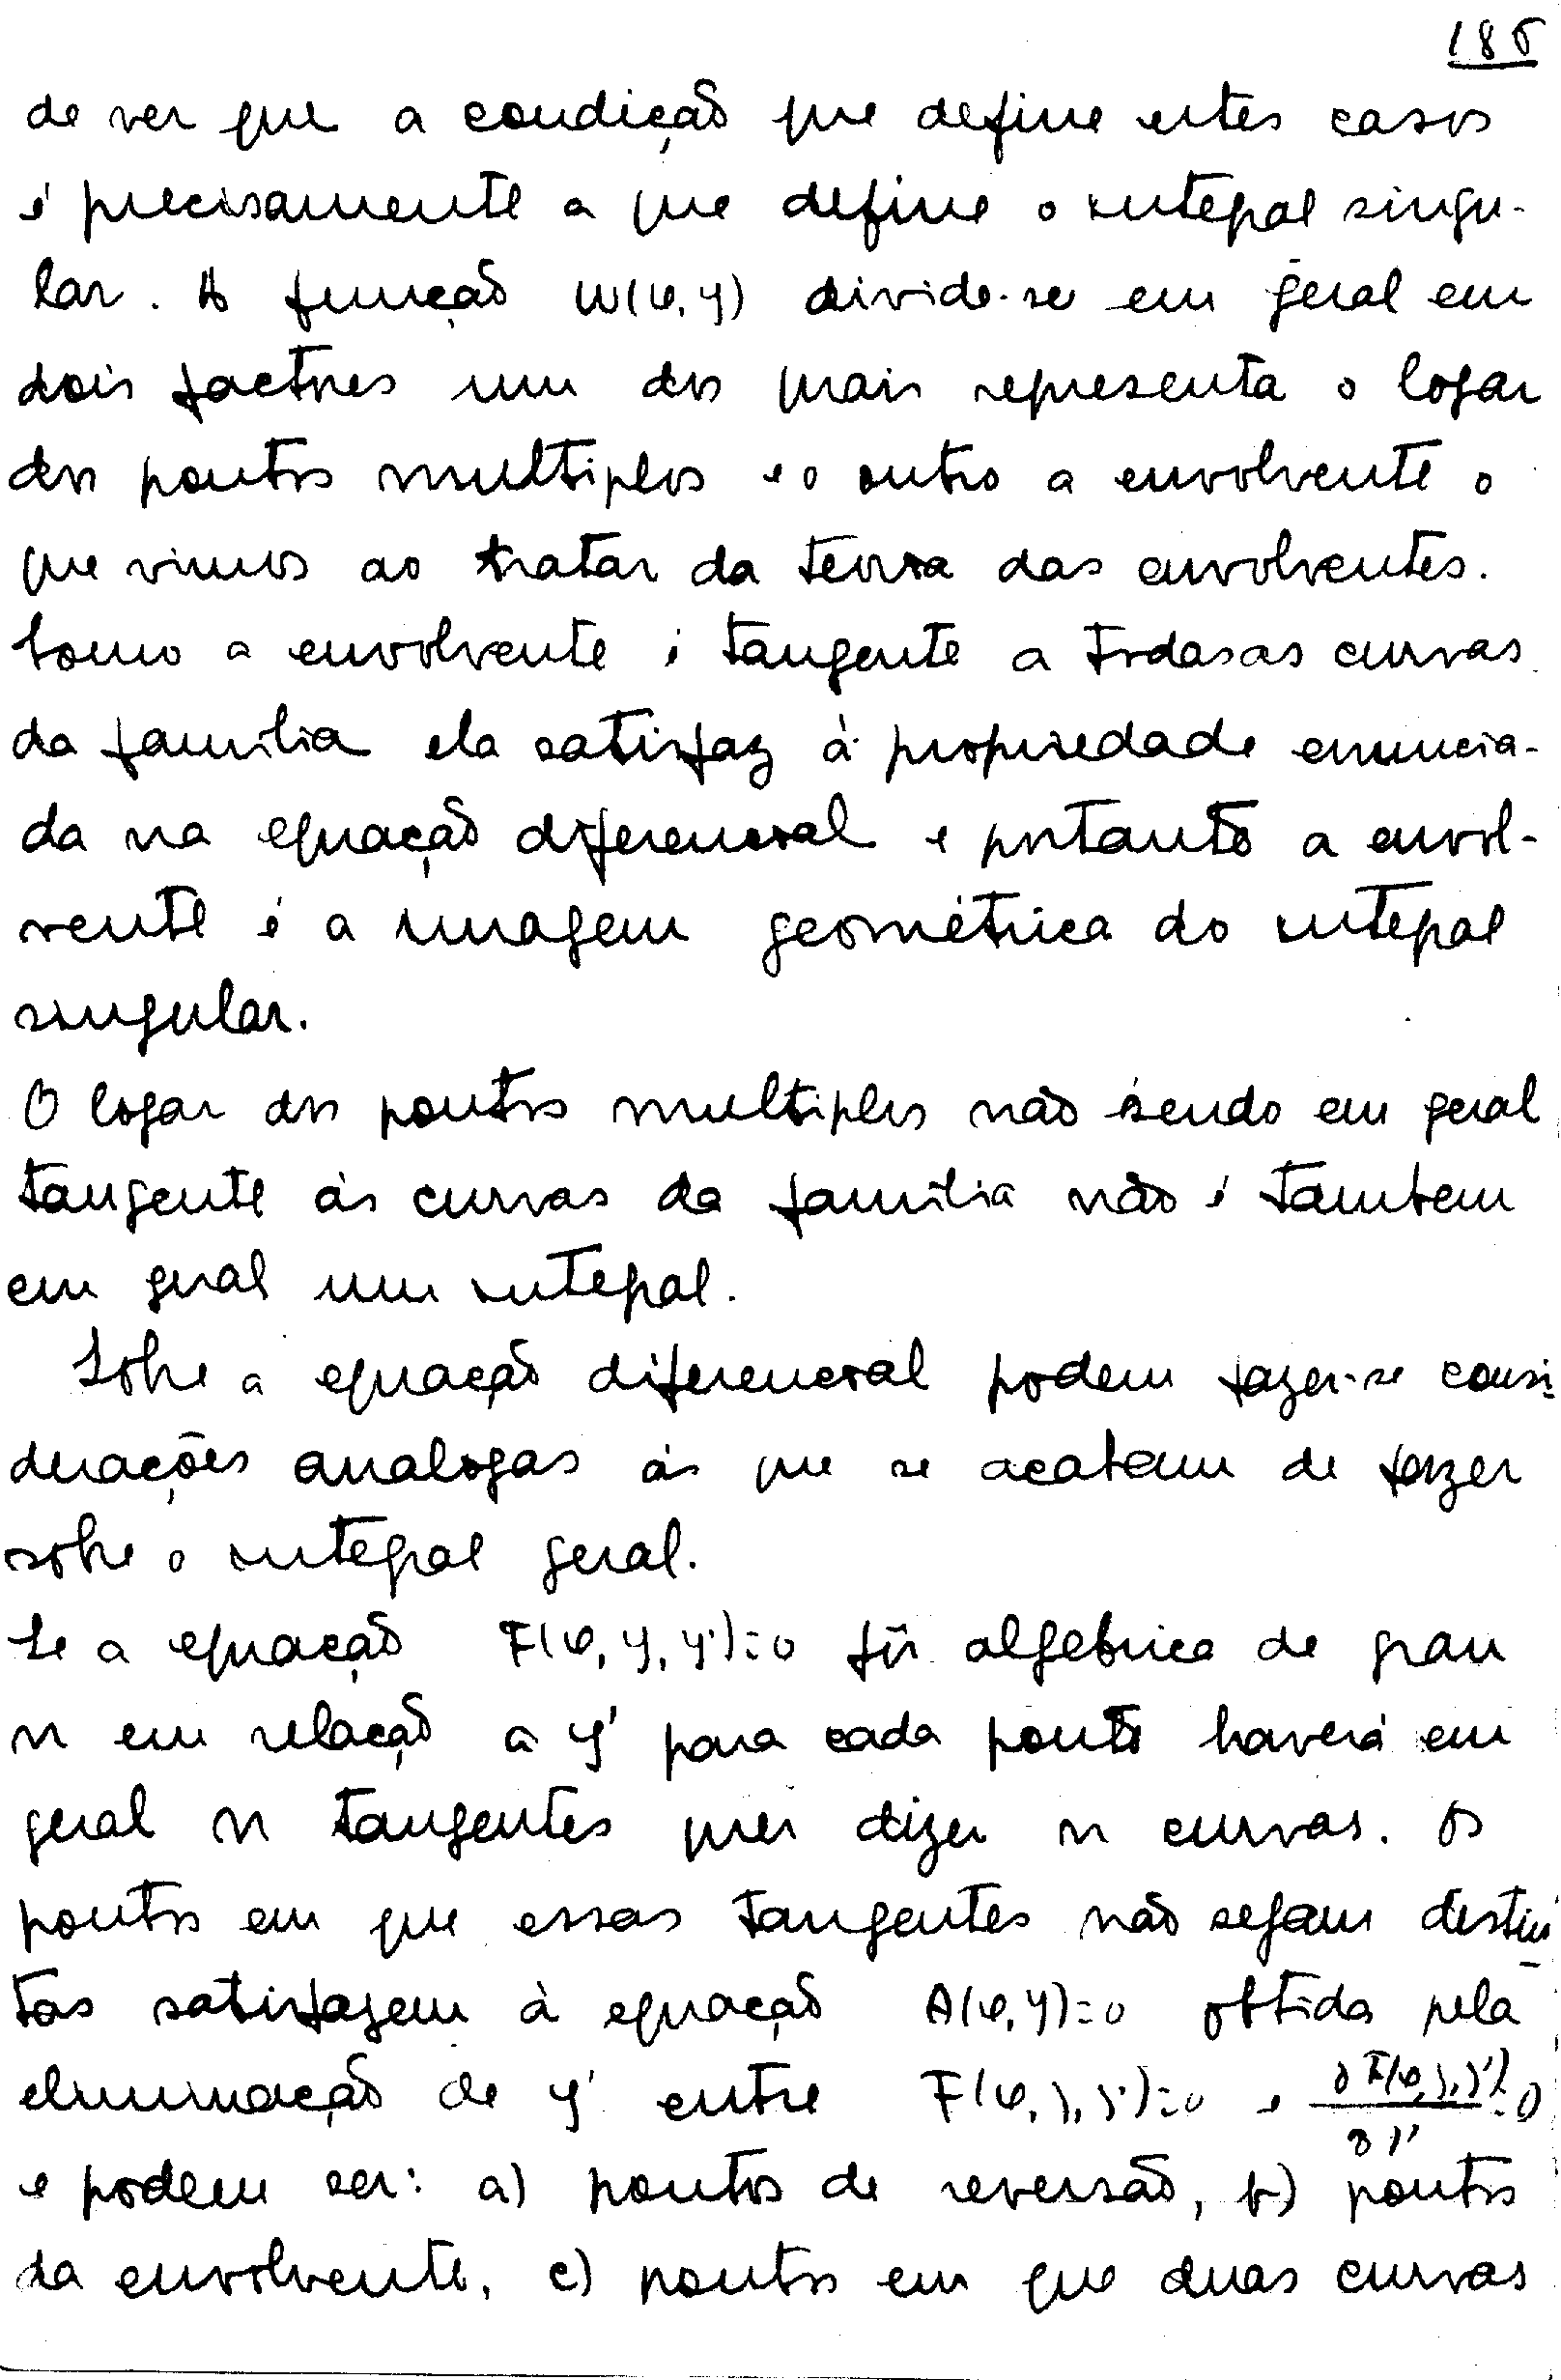 185
de ver que a condição que define estes casos
é precisamente a que define o integral singu-
lar. A função W(x, y) divide-se em geral em
dois factores um dos quais representa o logar
dos pontos multiplos e o outro a envolvente o
que vimos ao tratar da teoria das envolventes.
Como a envolvente é tangente a todas as curvas
da família ela satisfaz à propriedade enuncia-
da na equação diferencial e portanto a envol-
vente é a imagem geométrica do integral
singular.
O logar dos pontos multiplos não sendo em geral
tangente às curvas da família não é tambem
em geral um integral.
Sobre a equação diferencial podem fazer-se consi-
derações analogas às que se acabam de fazer
sobre o integral geral.
Se a equação F(x, y, y')=0 fôr algebrica de grau
n em relação a y' para cada ponto haverá em
geral n tangentes quer dizer n curvas. Os
pontos em que essas tangentes não sejam distin-
tas satisfazem à equação A(x, y)=0 obtida pela
eliminação de y' entre F(x, y, y')=0 e ∂F(x, y, y')/∂y'=0
e podem ser: a) pontos de reversão, b) pontos
da envolvente, c) pontos em que duas curvas